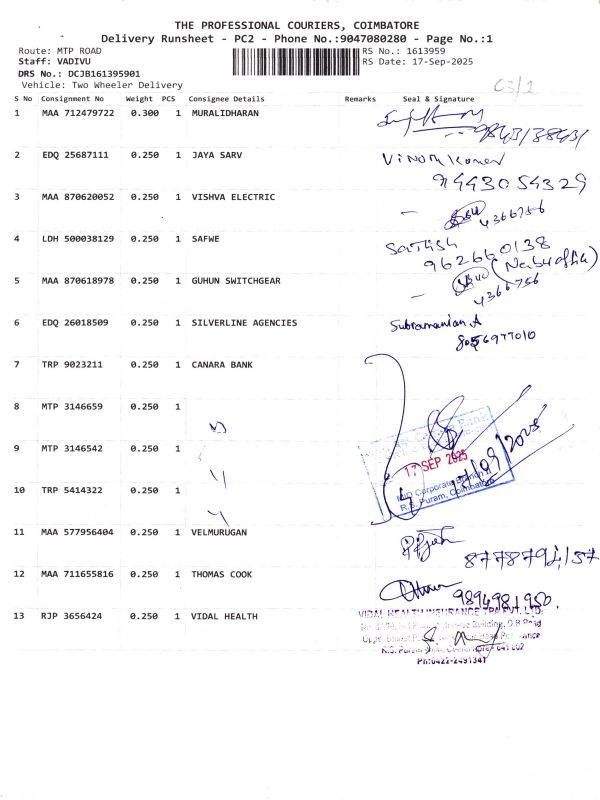 THE PROFESSIONAL COURIERS, COIMBATORE
Delivery Runsheet - PC2 - Phone No.:9047080280 - Page No.:1
Route: MTP ROAD
RS No.: 1613959
Staff: VADIVU
RS Date: 17-Sep-2025
DRS No.: DCJB161395901
Vehicle: Two Wheeler Delivery
S No Consignment No Weight PCS Consignee Details Remarks Seal & Signature
1 MAA 712479722 0.300 1 MURALIDHARAN
2 EDQ 25687111 0.250 1 JAYA SARV
Vinoth Kumar
9443054329
3 MAA 870620052 0.250 1 VISHVA ELECTRIC
- 4366756
4 LDH 500038129 0.250 1 SAFWE
Sathish
9626660138
5 MAA 870618978 0.250 1 GUHUN SWITCHGEAR
- 4366756
6 EDQ 26018509 0.250 1 SILVERLINE AGENCIES
Subramanian A
8056977010
7 TRP 9023211 0.250 1 CANARA BANK
8 MTP 3146659 0.250 1
9 MTP 3146542 0.250 1
17 SEP 2025
17/09/2025
10 TRP 5414322 0.250 1
Corporate Branch
R.S. Puram, Coimbatore
11 MAA 577956404 0.250 1 VELMURUGAN
12 MAA 711655816 0.250 1 THOMAS COOK
9894981950
13 RJP 3656424 0.250 1 VIDAL HEALTH
VIDAL HEALTH INSURANCE TPA PVT. LTD.
Ph:0422-2491341